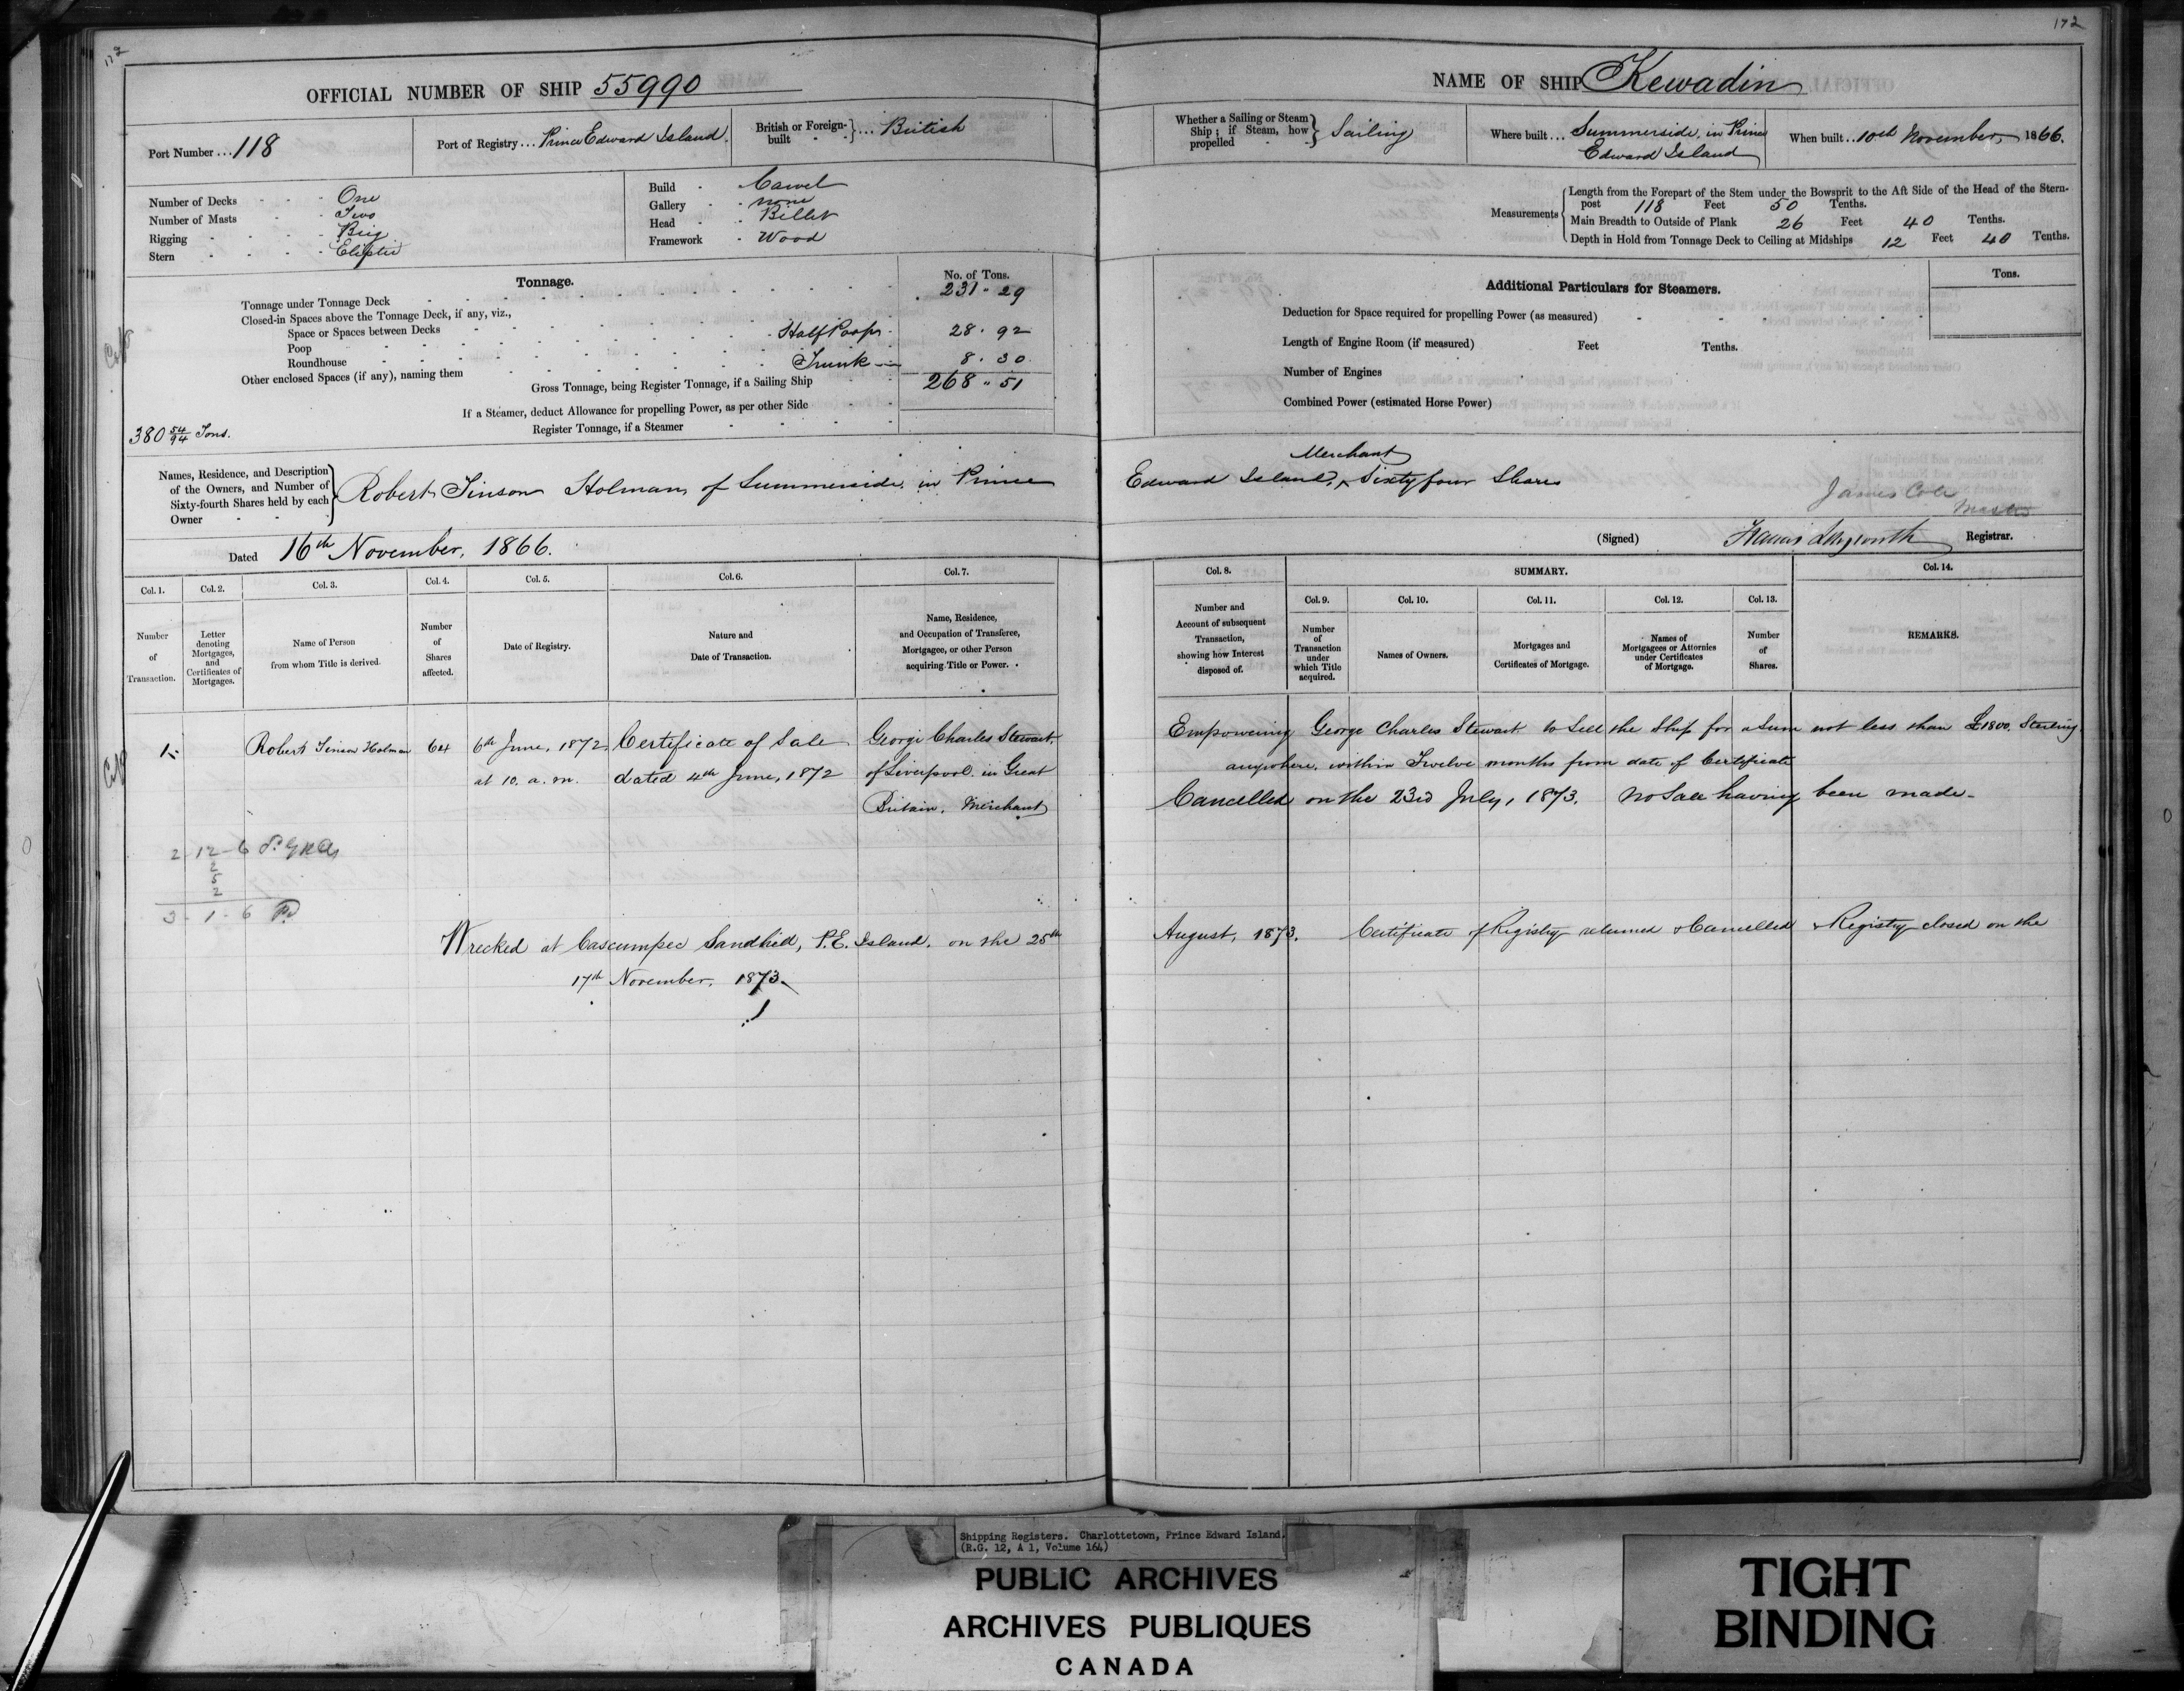 172
OFFICIAL NUMBER OF SHIP 55990
Port Number ... 118
Port of Registry ... Prince Edward Island.
British or Foreign-built } ... British
Number of Decks - - - One
Number of Masts - - Two
Rigging - - - - Brig
Stern - - - - Eliptic
Build - Carvel
Gallery - - none
Head - - Billet
Framework - Wood
Tonnage.
No. of Tons.
Tonnage under Tonnage Deck 231 " 29
Closed-in Spaces above the Tonnage Deck, if any, viz.,
Space or Spaces between Decks
Poop - Half Poop - 28 . 92
Roundhouse
Other enclosed Spaces (if any), naming them Trunk 8 . 30
Gross Tonnage, being Register Tonnage, if a Sailing Ship 268 " 51
If a Steamer, deduct Allowance for propelling Power, as per other Side
Register Tonnage, if a Steamer
380 54/94 Tons.
Names, Residence, and Description of the Owners, and Number of Sixty-fourth Shares held by each Owner } Robert Tinson Holman, of Summerside, in Prince
Dated 16th November, 1866.
Col. 1. Col. 2. Col. 3. Col. 4. Col. 5. Col. 6. Col. 7.
Number of Transaction.
Letter denoting Mortgages, and Certificates of Mortgages.
Name of Person from whom Title is derived.
Number of Shares affected.
Date of Registry.
Nature and Date of Transaction.
Name, Residence, and Occupation of Transferee, Mortgagee, or other Person acquiring Title or Power.
1. Robert Tinson Holman 64 6th June, 1872 Certificate of Sale George Charles Stewart,
at 10. a.m. dated 4th June, 1872 of Liverpool in Great
Britain, Merchant
2-12-6
2
5
2
3-1-6 Pd
Wrecked at Cascumpec Sandhill, P.E. Island. on the 25th
17th November, 1873.
172
NAME OF SHIP Kewadin
Whether a Sailing or Steam Ship; if Steam, how propelled } Sailing
Where built ... Summerside, in Prince
Edward Island
When built .. 10th November, 1866.
Measurements
Length from the Forepart of the Stem under the Bowsprit to the Aft Side of the Head of the Stern-
post 118 Feet 50 Tenths.
Main Breadth to Outside of Plank 26 Feet 40 Tenths.
Depth in Hold from Tonnage Deck to Ceiling at Midships 12 Feet 40 Tenths.
Additional Particulars for Steamers.
Tons.
Deduction for Space required for propelling Power (as measured)
Length of Engine Room (if measured) Feet Tenths.
Number of Engines
Combined Power (estimated Horse Power)
Merchant
Edward Island, ^ Sixty four Shares
James Cole
Master
(Signed) Registrar.
Col. 8. SUMMARY. Col. 14.
Col. 9. Col. 10. Col. 11. Col. 12. Col. 13.
Number and Account of subsequent Transaction, showing how Interest disposed of.
Number of Transaction under which Title acquired.
Names of Owners.
Mortgages and Certificates of Mortgage.
Names of Mortgagees or Attornies under Certificates of Mortgage.
Number of Shares.
REMARKS.
Empowering George Charles Stewart to Sell the Ship for a Sum not less than £1800. Sterling
anywhere, within Twelve months from date of Certificate
Cancelled on the 23rd July, 1873. No Sale having been made -
August, 1873. Certificate of Registry returned & Cancelled & Registry closed on the
Shipping Registers. Charlottetown, Prince Edward Island.
(R.G. 12, A 1, Volume 164)
PUBLIC ARCHIVES
ARCHIVES PUBLIQUES
CANADA
TIGHT
BINDING